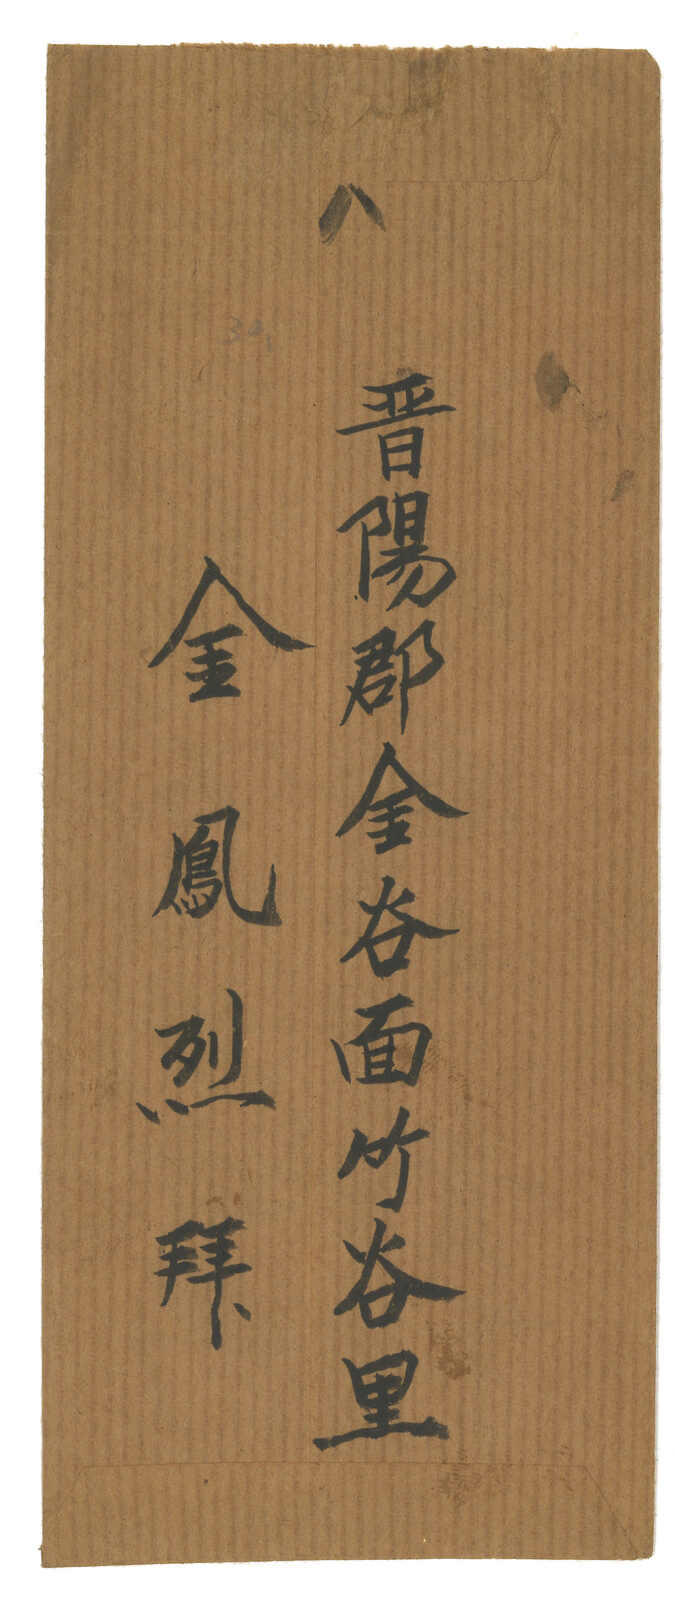 晋陽郡金谷面竹谷里
金鳳烈拜